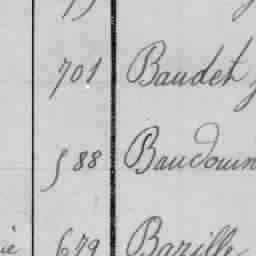 701 Baudet
588 Baudouin
ie 679 Bazille